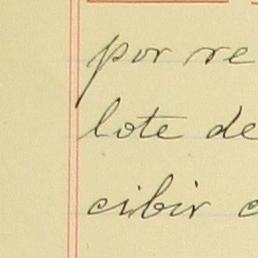 por re
lote de
cibir c